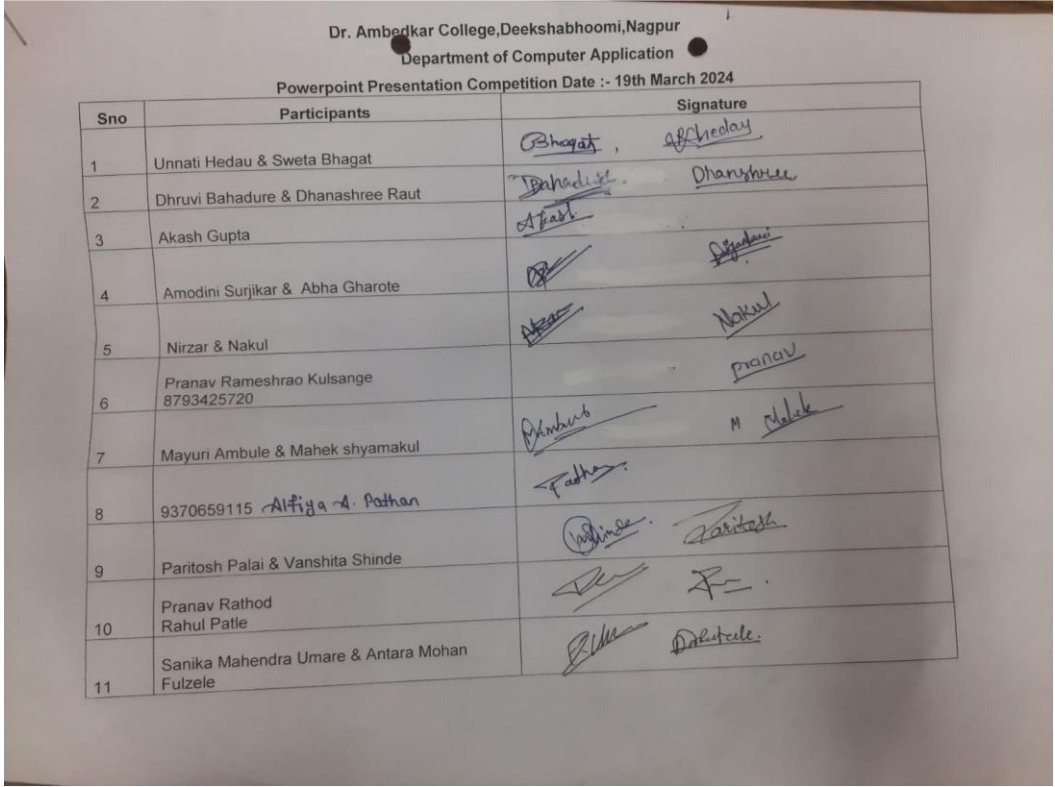 Dr. Ambedkar College,Deekshabhoomi,Nagpur
Department of Computer Application
Powerpoint Presentation Competition Date :- 19th March 2024
Sno Participants Signature
1 Unnati Hedau & Sweta Bhagat Bhagat ,
2 Dhruvi Bahadure & Dhanashree Raut Bahadure Dhanshree
3 Akash Gupta Akash
4 Amodini Surjikar & Abha Gharote
5 Nirzar & Nakul Nakul
6 Pranav Rameshrao Kulsange
8793425720 pranav
7 Mayuri Ambule & Mahek shyamakul M Mahek
8 9370659115 Alfiya A. Pathan Pathan
9 Paritosh Palai & Vanshita Shinde Shinde. Paritosh
10 Pranav Rathod
Rahul Patle
11 Sanika Mahendra Umare & Antara Mohan
Fulzele